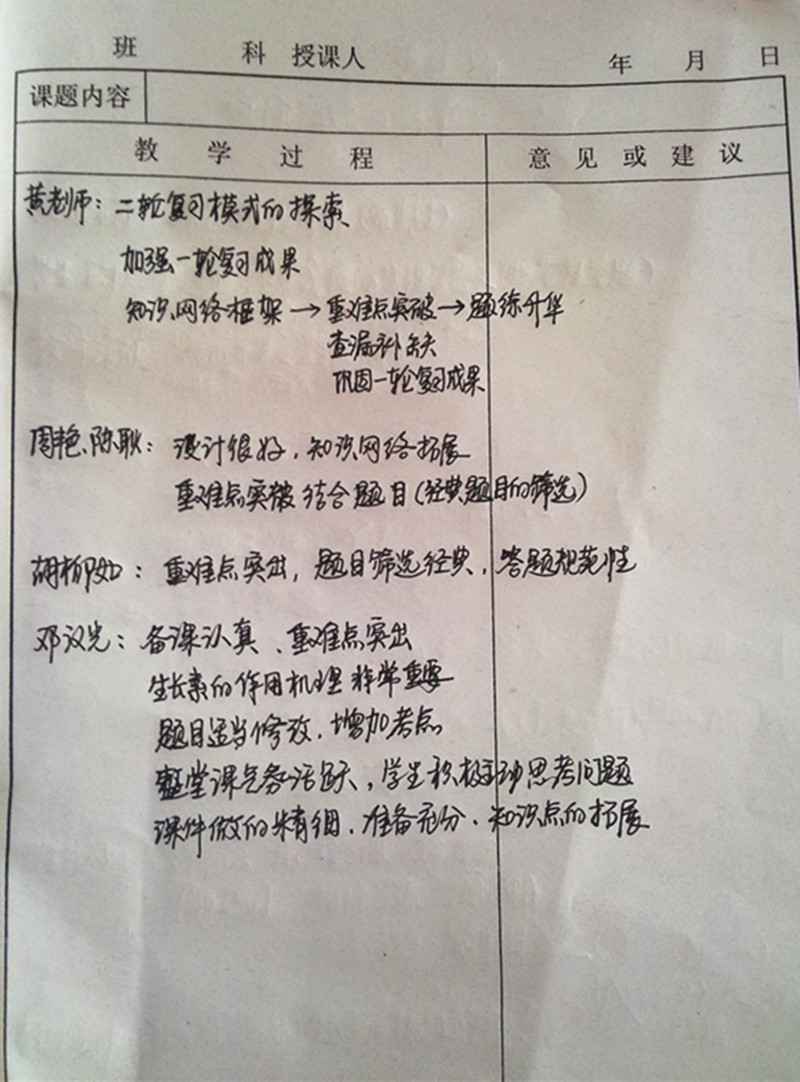 班 科 授课人 年 月 日
课题内容
教 学 过 程 意 见 或 建 议
黄老师：二轮复习模式的探索
加强一轮复习成果
知识网络框架→重难点突破→题练升华
查漏补缺
巩固一轮复习成果
周艳、陈耿：设计很好，知识网络拓展
重难点突破 结合题目（经典题目的筛选）
胡柳如：重难点突出，题目筛选经典，答题规范性
邓议先：备课认真、重难点突出
生长素的作用机理非常重要
题目适当修改，增加考点
整堂课气氛活跃，学生积极主动思考问题
课件做的精细，准备充分，知识点的拓展